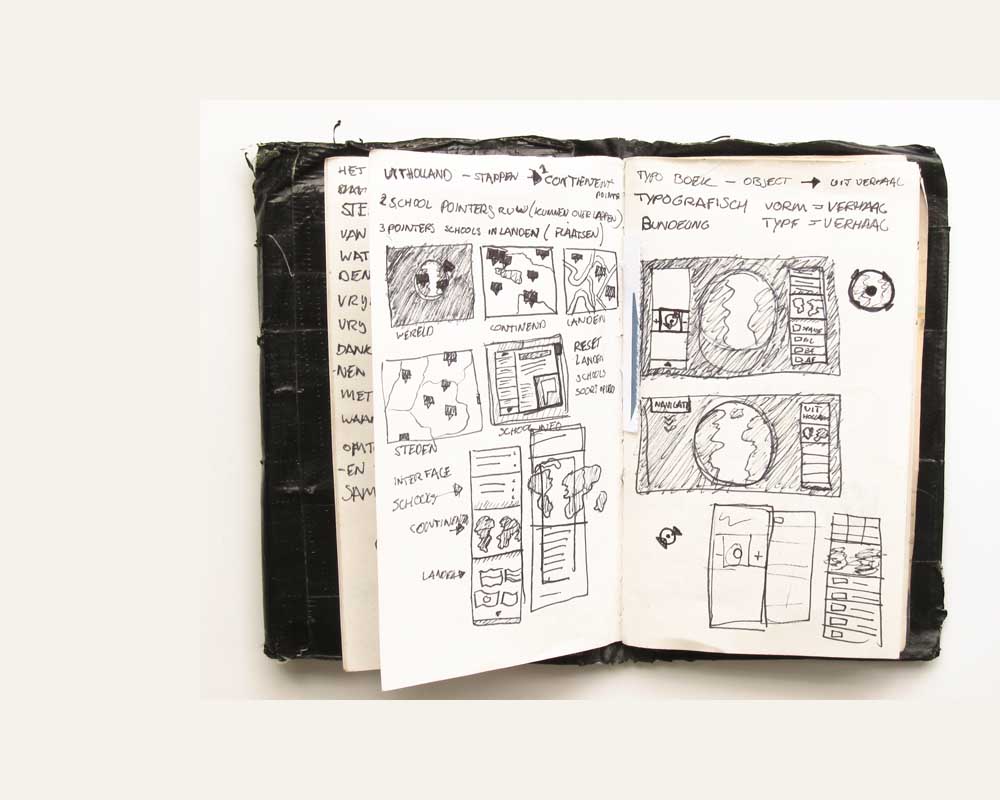 HET
STE
VAN
WAT
DEN
VRY
VRY
DANK
NEN
MET
WAAR
-EN
SAM
UITHOLLAND - STAPPEN → 1 CONTINENT
POINTE
2 SCHOOL POINTERS RUW (KUNNEN OVERLAPPEN)
3 POINTERS SCHOOLS IN LANDEN (PLAATSEN)
WERELD
CONTINEND
LANDEN
RESET
LANDEN
SCHOOLS
SOORT
STEDEN
SCHOOL INFO
INTERFACE
SCHOOLS
CONTINEND
LANDEN
TYPO BOEK - OBJECT → UIT VERHAAL
TYPOGRAFISCH VORM = VERHAAG
TYPF = VERHAAL
NAVIGATE
UIT
HOLLAND